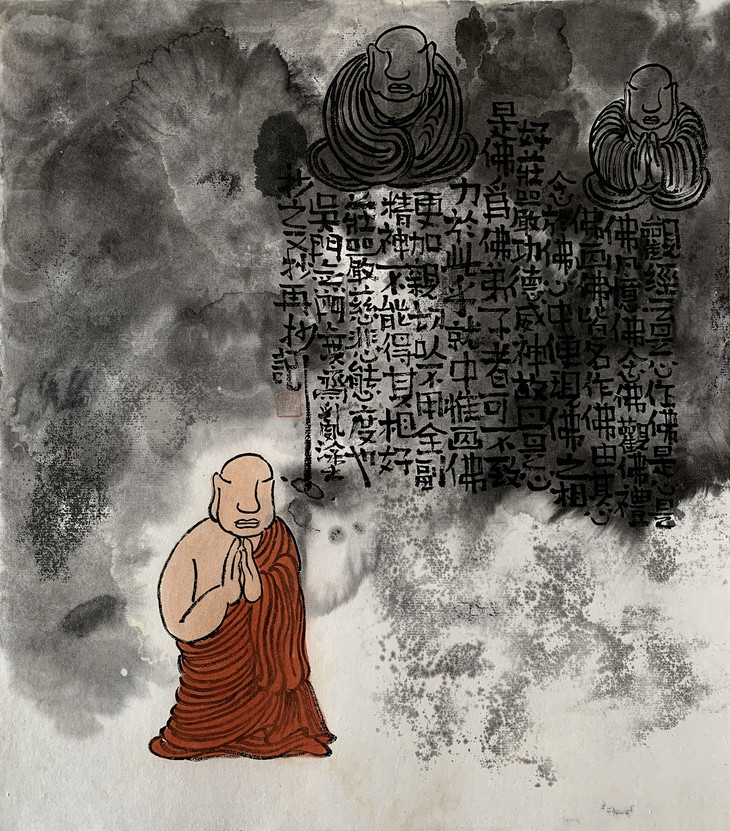 觀經云是心作佛是心是
佛凡憶佛念佛觀佛禮
佛画佛皆名作佛由其心
念於佛心中便現佛之相
好莊嚴功德威神故曰是心
是佛為佛弟子者可不致
力於此乎就中惟画佛
更加親切以不用全副
精神不能得其相好
莊嚴慈悲態度也
吳門
抄之又抄再抄記